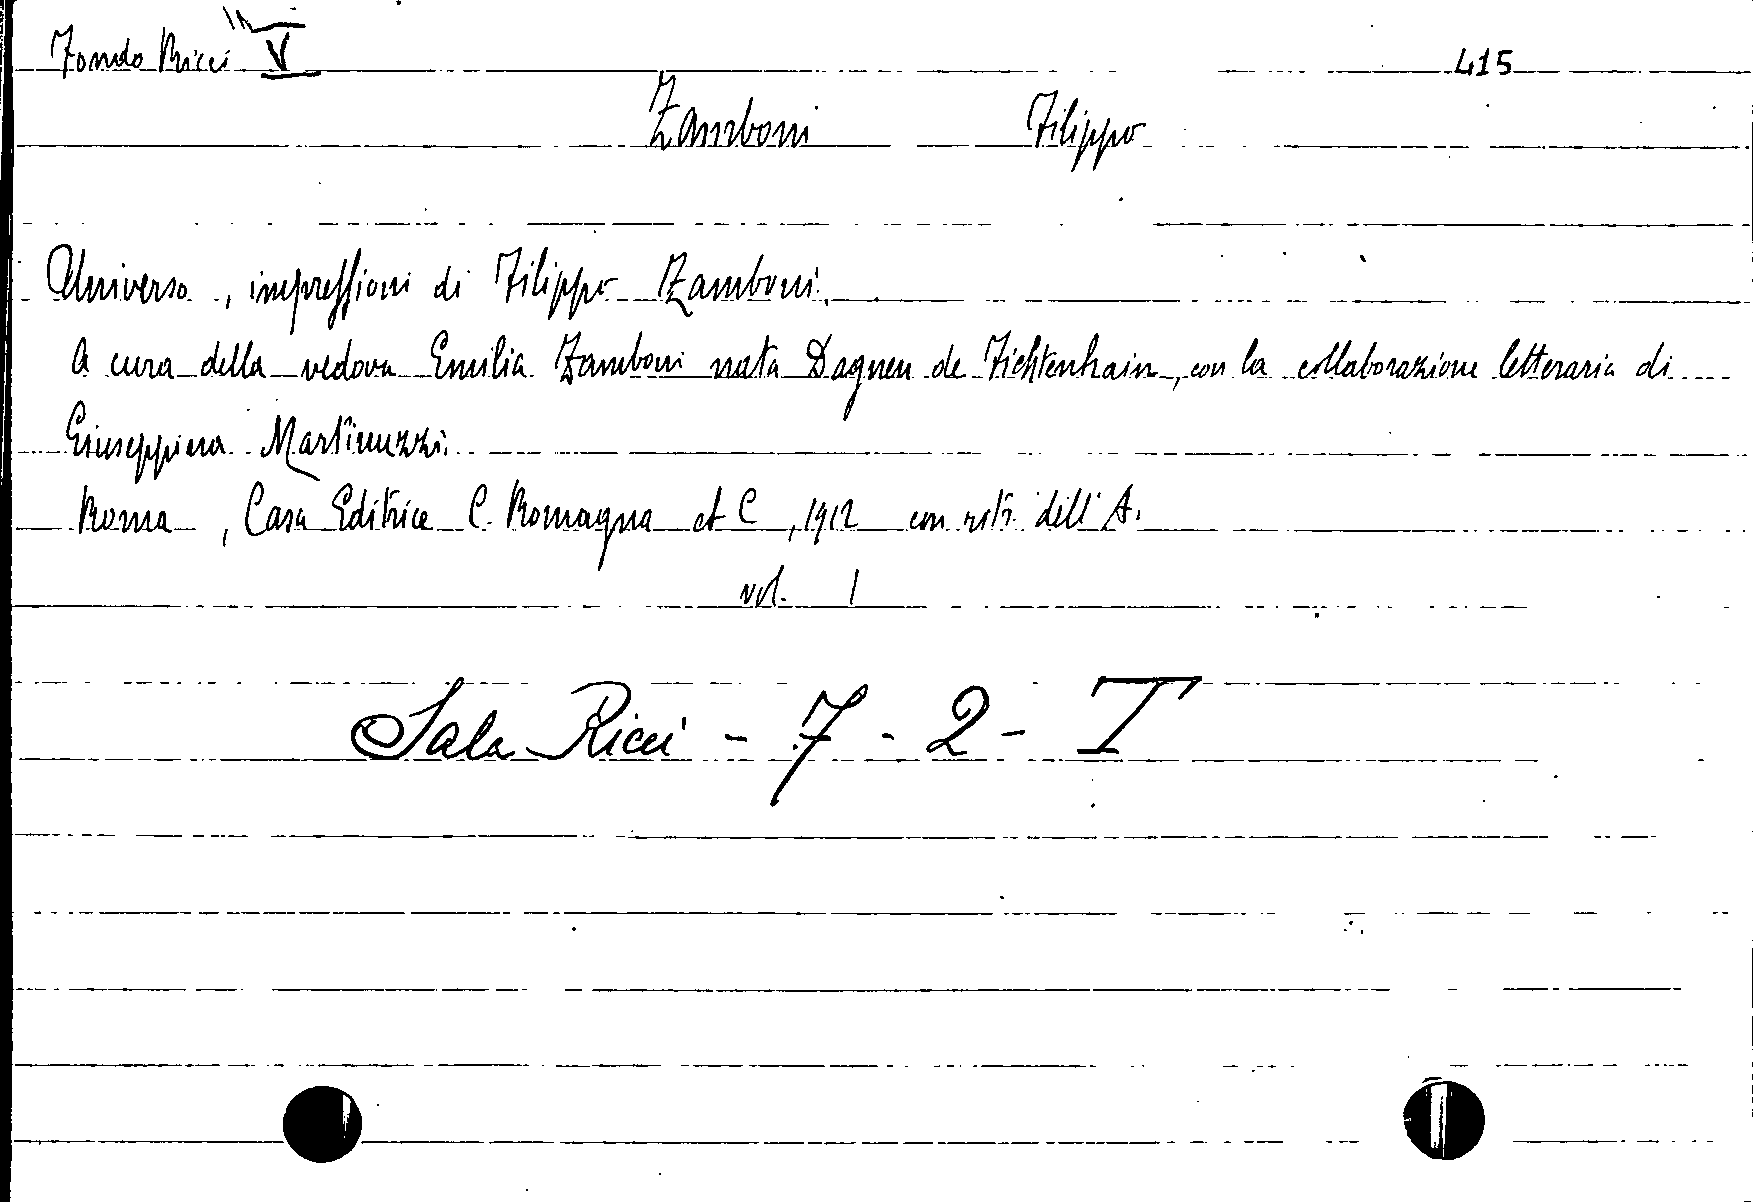 Fondo Ricci V 415
Zamboni Filippo
Universo, impressioni di Filippo Zamboni.
A cura della vedova Emilia Zamboni nata Dagnen de Fichtenhain, con la collaborazione letteraria di
Giuseppina Martinuzzi.
Roma, Casa Editrice C. Romagna et C, 1912 con ritr. dell'A.
vol. 1
Sala Ricci - 7 - 2 - I